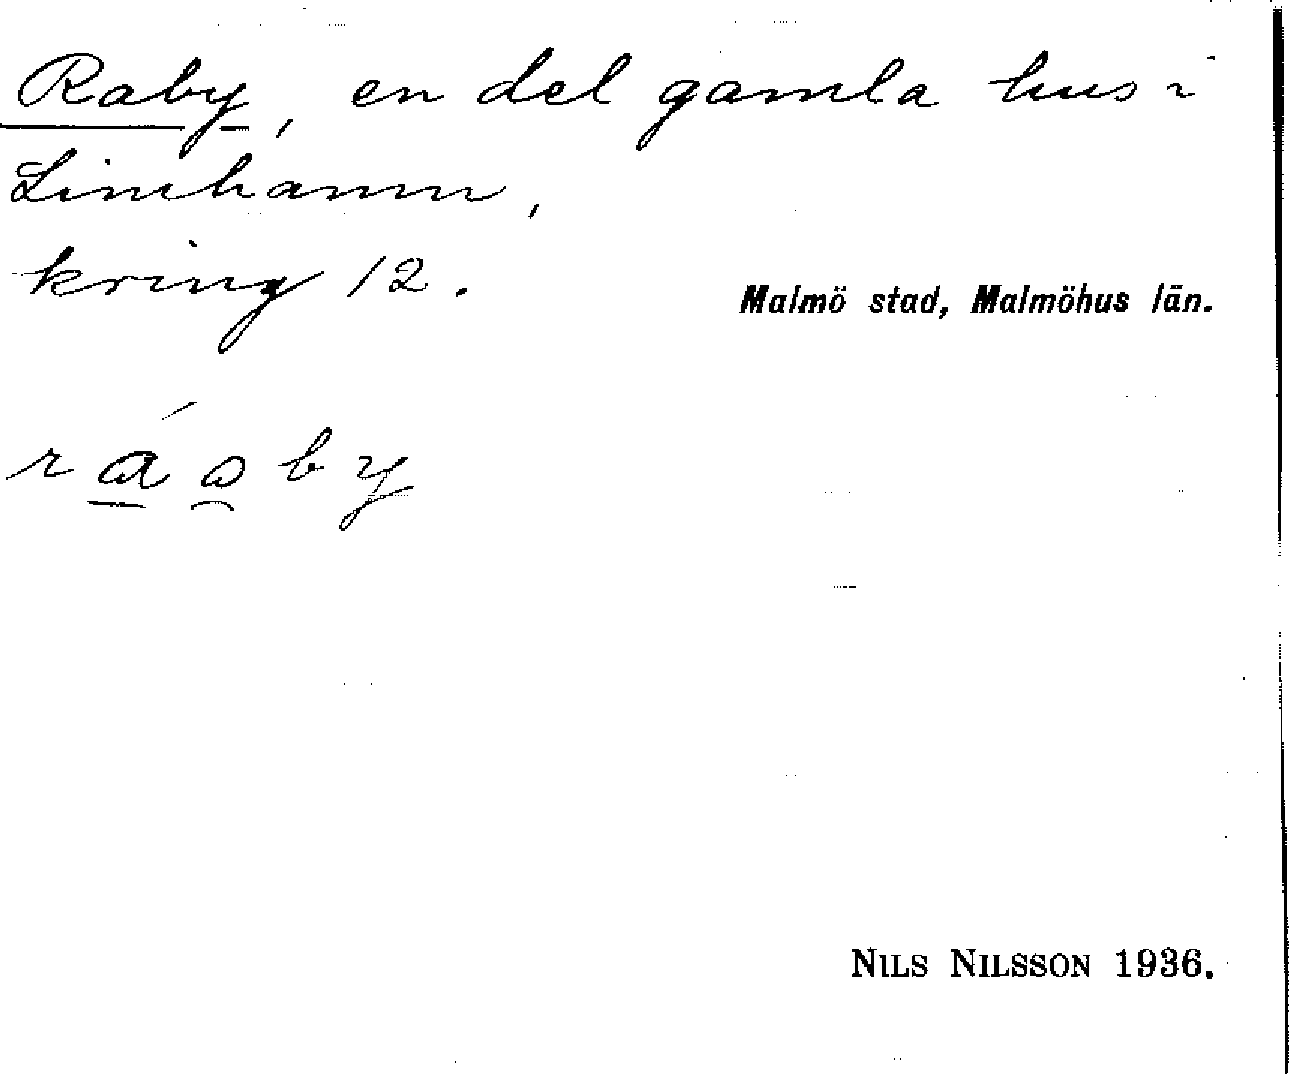 Raby, en del gamla hus i
Limhamn,
kring 12.
Malmö stad, Malmöhus län.
ráɷby
NILS NILSSON 1936.